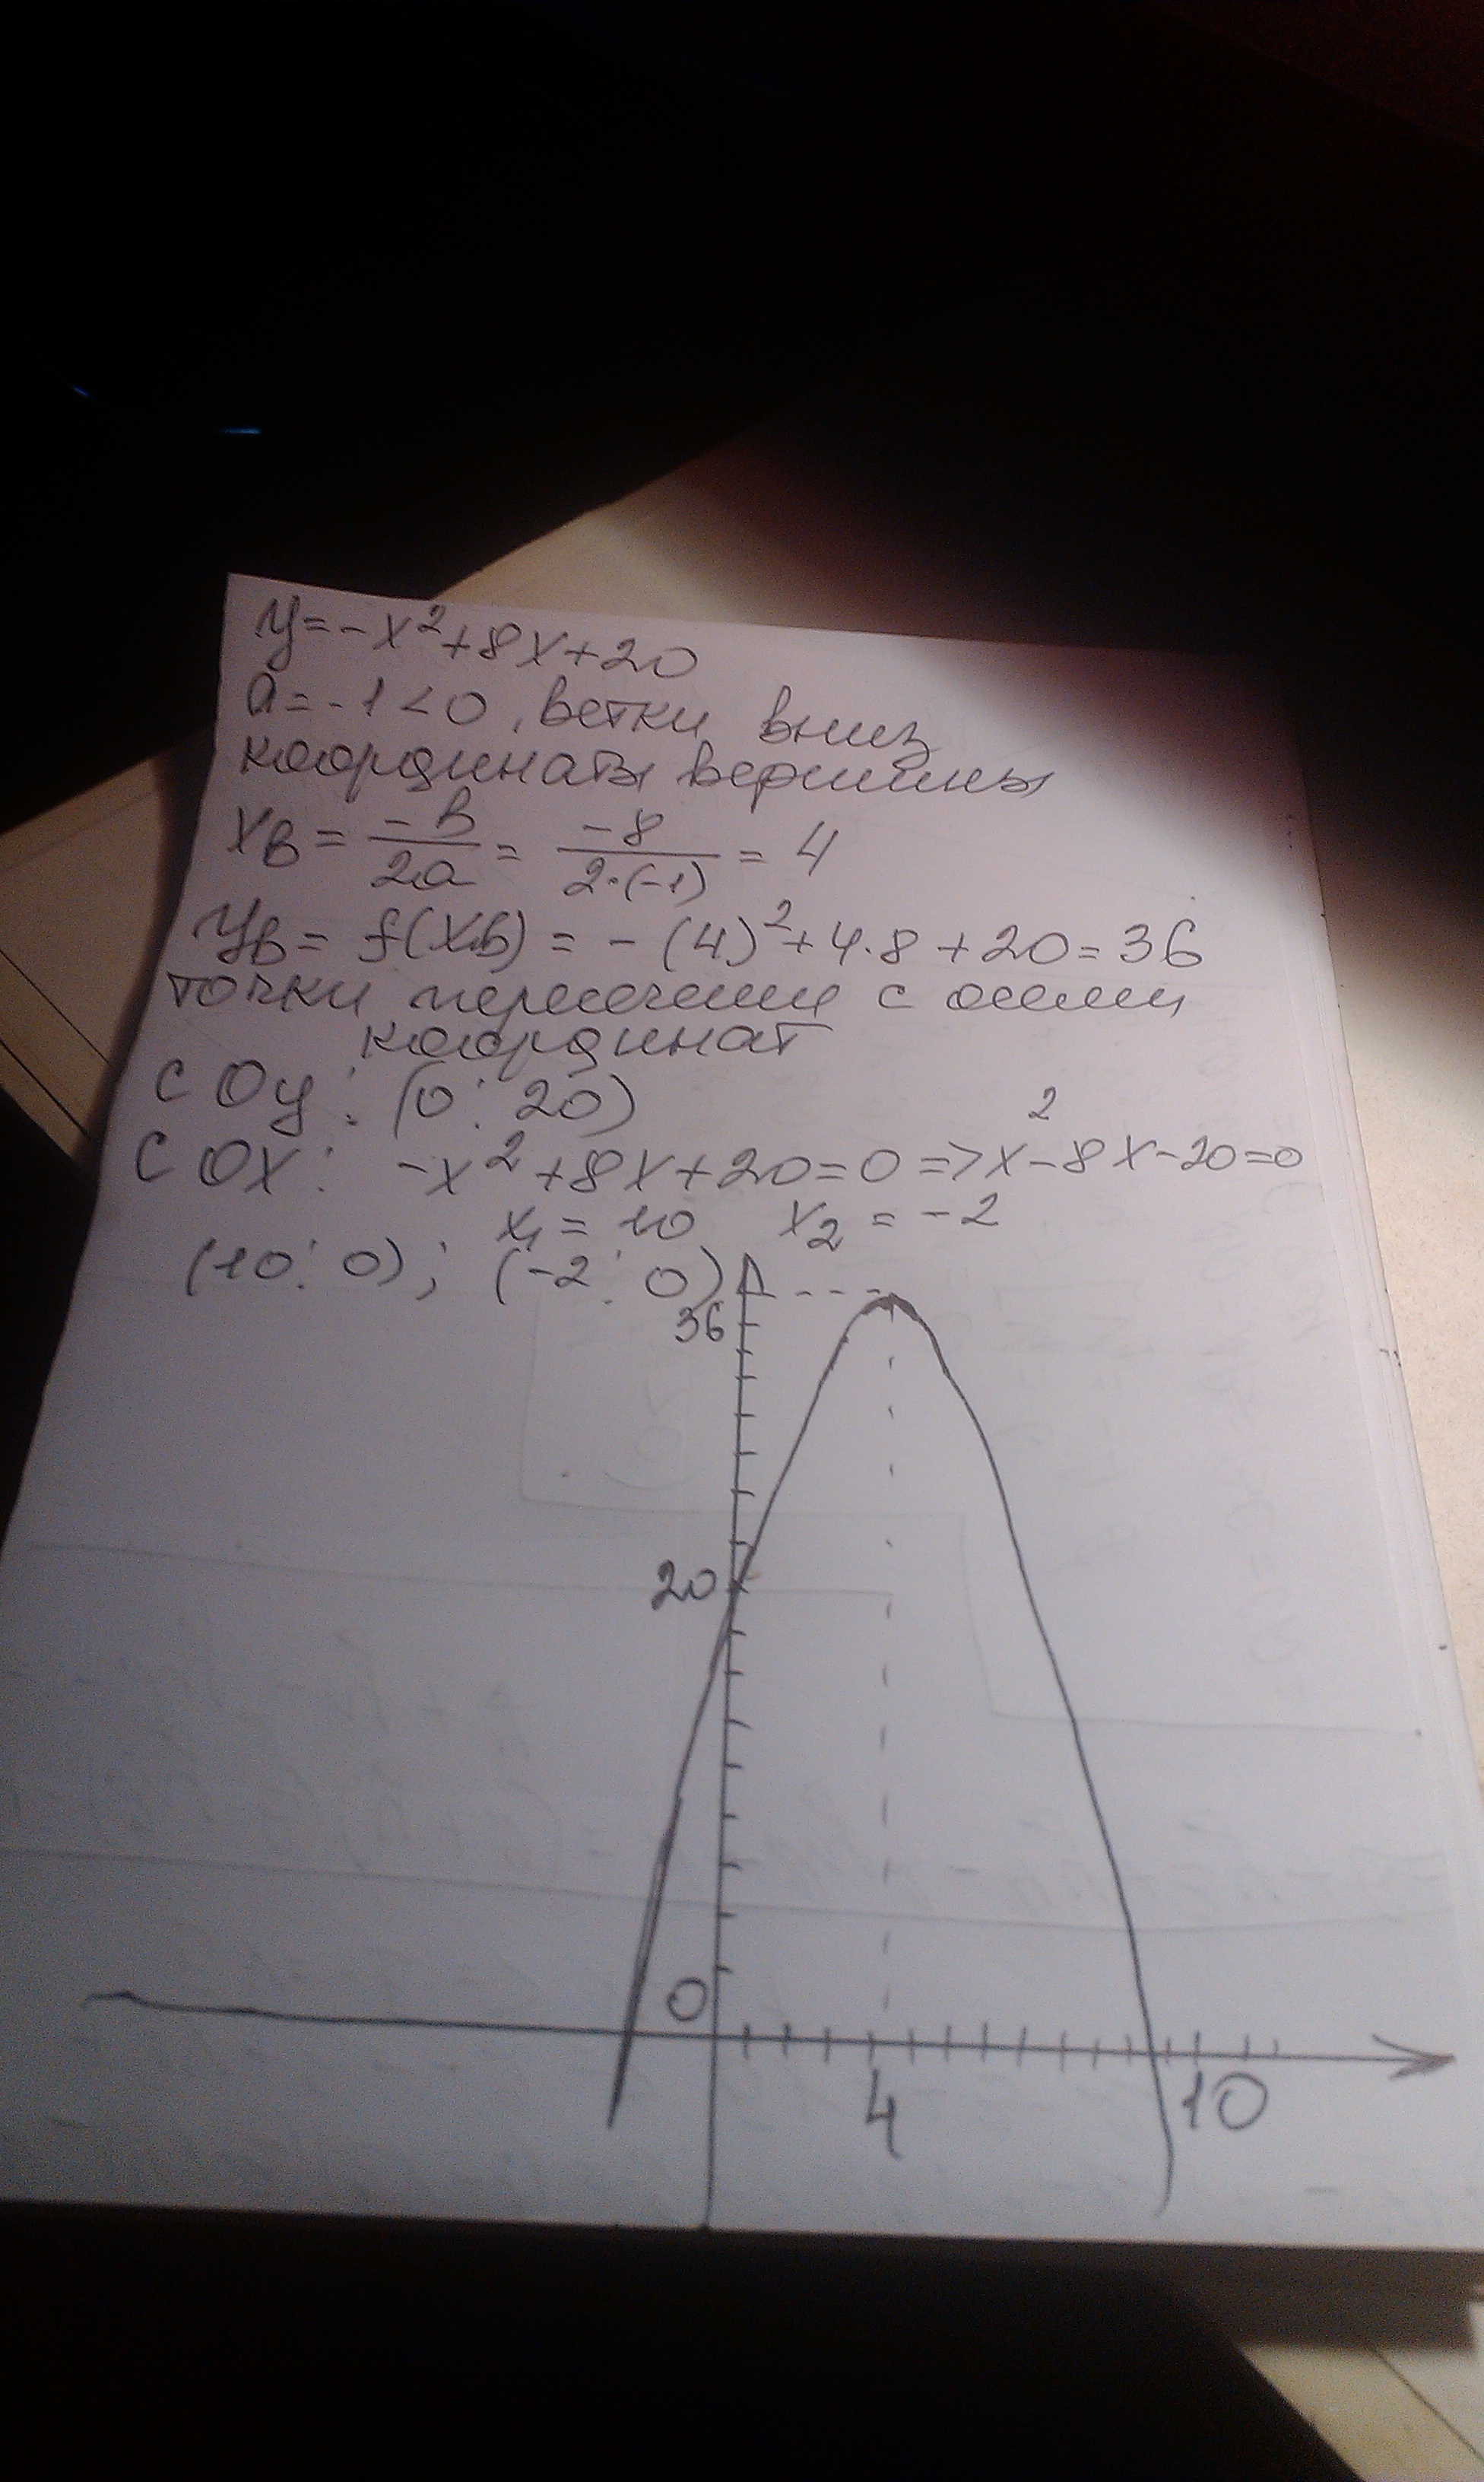 y=-x²+8x+20
a=-1<0, ветки вниз
координаты вершины
xв = -в/2a = -8/2·(-1) = 4
yв = f(xв) = -(4)²+4·8+20=36
точки пересечение с осями
координат
с Oy: (0; 20)
с Ox: -x²+8x+20=0 => x²-8x-20=0
x₁ = 10 x₂ = -2
(10; 0); (-2; 0)
36
20
0
4
10